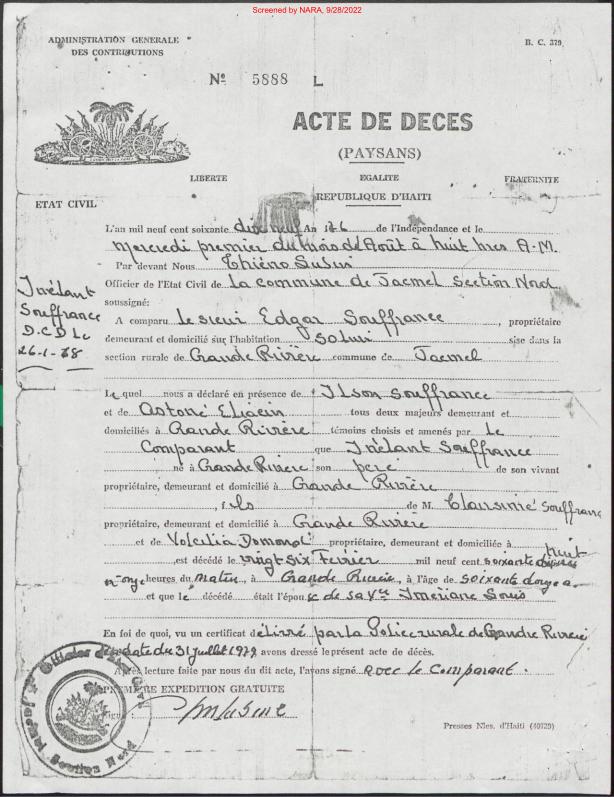 Screened by NARA, 9/28/2022
ADMINISTRATION GENERALE
DES CONTRIBUTIONS
B. C. 379
Nº 5888 L
ACTE DE DECES
(PAYSANS)
LIBERTE EGALITE FRATERNITE
REPUBLIQUE D'HAITI
ETAT CIVIL
L'an mil neuf cent soixante dix neuf An 176 de l'Indépendance et le
mercredi premier du mois d'Août à huit hres A-M.
Par devant Nous
Officier de l'Etat Civil de La commune de Jacmel Section Nord
soussigné:
A comparu Le sieur Edgar Souffrance, propriétaire
demeurant et domicilié sur l'habitation sise dans la
section rurale de Grande Rivière commune de Jacmel
Inélant
Souffrance
D.C.D Le
26-1-78
Le quel nous a déclaré en présence de Ilson Souffrance
et de tous deux majeurs demeurant et
domiciliés à Grande Rivière témoins choisis et amenés par Le
Comparant que Inélant Souffrance
né à Grande Riviere son père de son vivant
propriétaire, demeurant et domicilié à Grande Rivière
, fils de M. Souffrance
propriétaire, demeurant et domicilié à Grande Rivière
et de Volcilia Domond propriétaire, demeurant et domiciliée à
huit
est décédé le vingt six Fevrier mil neuf cent soixante
heures du matin, à Grande Riviere, à l'âge de soixante
et que le décédé était l'époux de sa Vve
En foi de quoi, vu un certificat délivré par la Police rurale de Grande Riviere
en date du 31 juillet 1979 avons dressé le présent acte de décès.
Après lecture faite par nous du dit acte, l'avons signé avec le comparant.
PREMIERE EXPEDITION GRATUITE
Signé:
Presses Nles. d'Haiti (40729)
Officier d'Etat Civil
Jacmel Section Nord